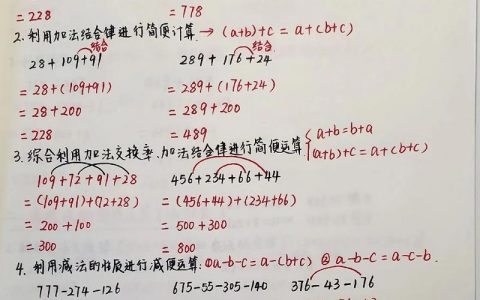 =228 =778
2.利用加法结合律进行简便计算.→(a+b)+c=a+(b+c)
结合 结合
28+109+91 289+176+24
=28+(109+91) =289+(176+24)
=28+200 =289+200
=228 =489
3.综合利用加法交换率、加法结合律进行简便运算{a+b=b+a
(a+b)+c=a+(b+c)
109+72+91+28 456+234+66+44
=(109+91)+(72+28) =(456+44)+(234+66)
=200+100 =500+300
=300 =800
4.利用减法的性质进行减便运算.①a-b-c=a-(b+c) ②a-b-c=a-c-b.
777-274-126 675-55-305-140 376-43-176